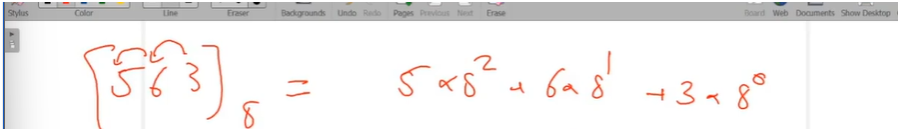 Stylus Color Line Eraser Backgrounds Undo Redo Pages Previous Next Erase Board Web Documents Show Desktop
[563]₈ = 5×8² + 6×8¹ + 3×8⁰